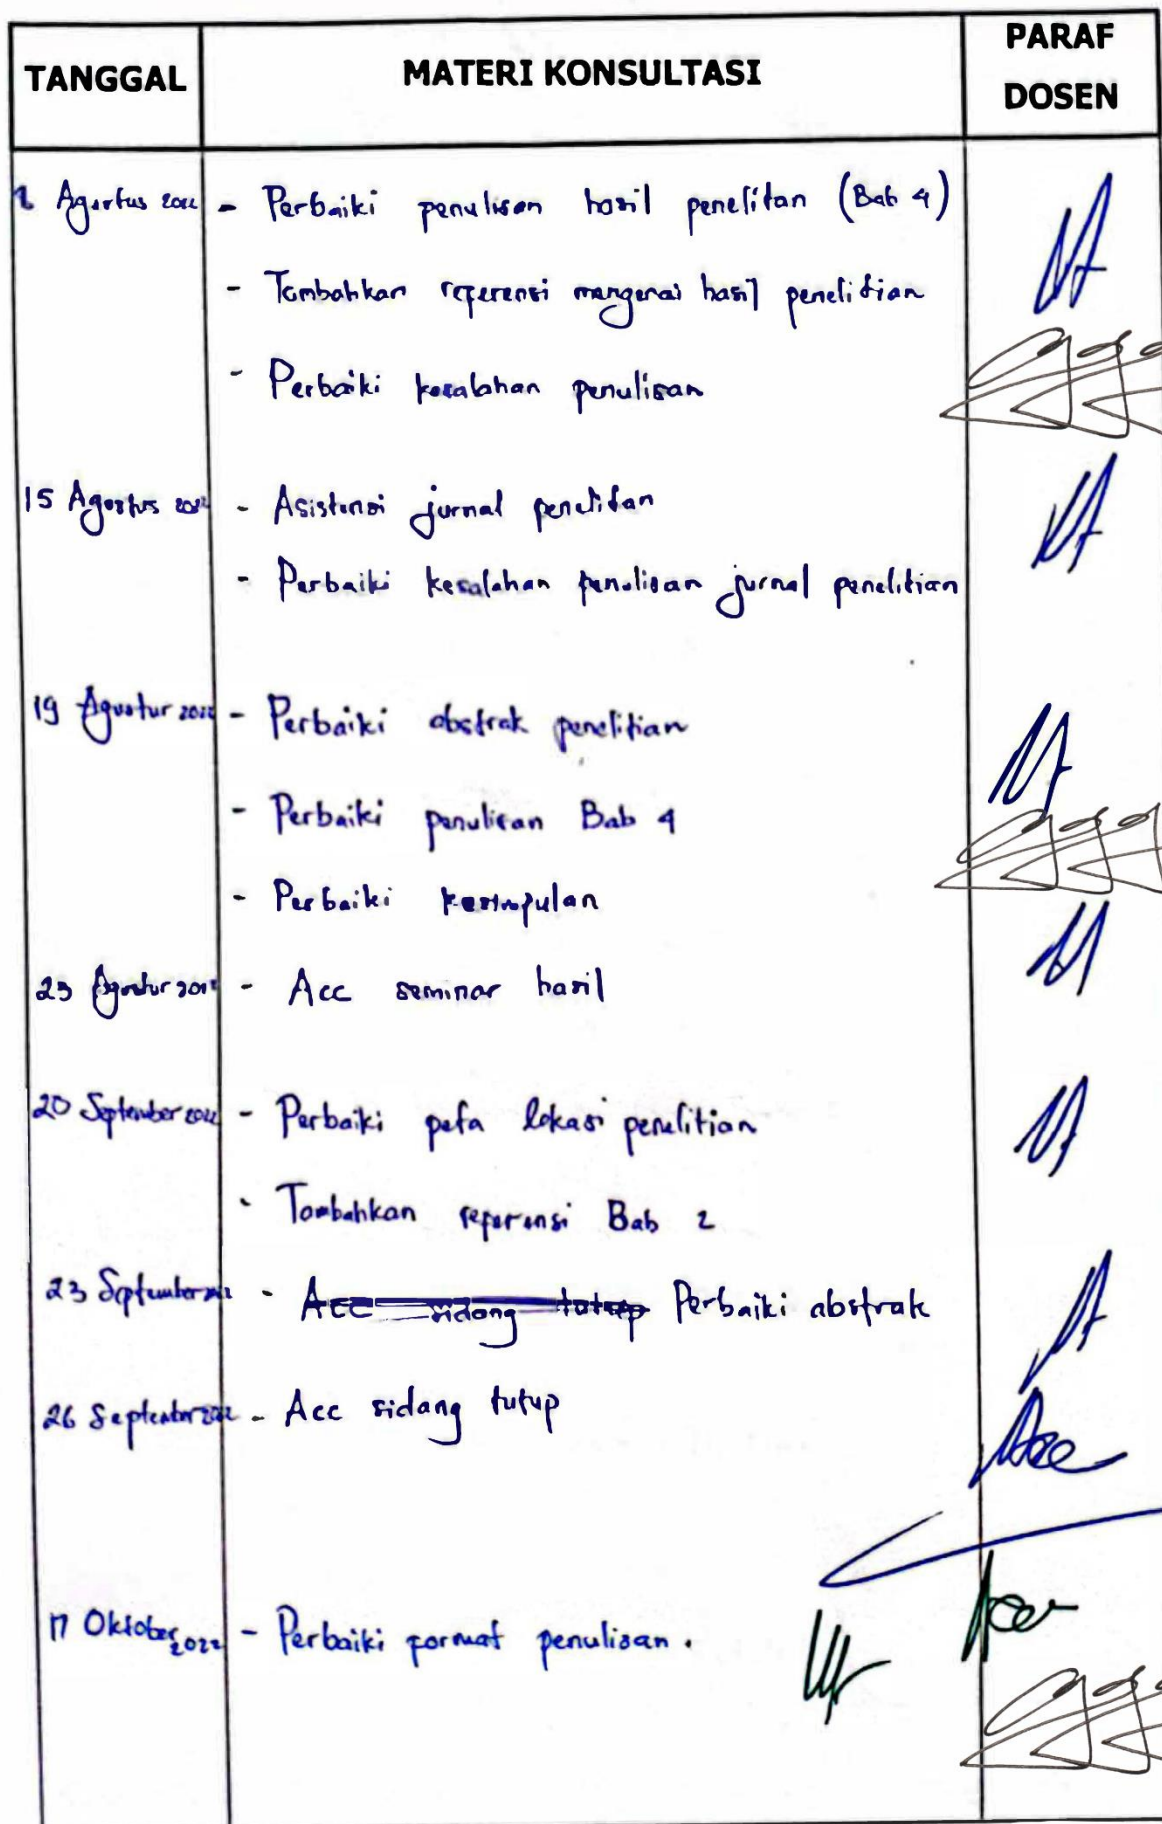 TANGGAL MATERI KONSULTASI PARAF DOSEN
Agustus 2022 - Perbaiki penulisan hasil penelitan (Bab 4)
- Tambahkan referensi mengenai hasil penelitian
- Perbaiki kesalahan penulisan
15 Agustus 2022 - Asistensi jurnal penelitan
- Perbaiki kesalahan penulisan jurnal penelitian
19 Agustus 2022 - Perbaiki abstrak penelitian
- Perbaiki penulisan Bab 4
- Perbaiki kesimpulan
23 Agustus 2022 - Acc seminar hasil
20 September 2022 - Perbaiki peta lokasi penelitian
- Tambahkan referensi Bab 2
23 September 2022 - Acc sidang tutup Perbaiki abstrak
26 September 2022 - Acc sidang tutup
Acc
17 Oktober 2022 - Perbaiki format penulisan.
Acc